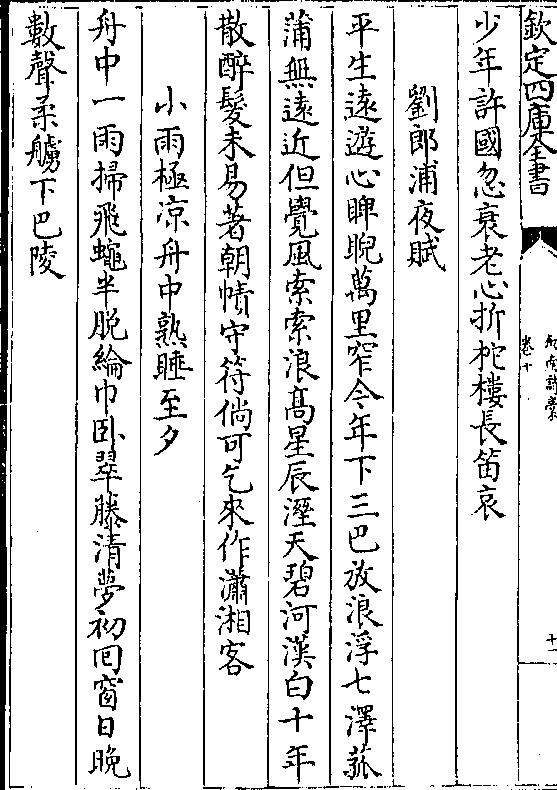 欽定四庫全書
劍南詩藁
卷十
十一
少年許國忽衰老心折柁樓長笛哀
劉郎浦夜賦
平生遠遊心睥睨萬里窄今年下三巴放浪浮七澤菰
蒲無遠近但覺風索索浪髙星辰溼天碧河漢白十年
散醉髮未易著朝幘守符倘可乞來作瀟湘客
小雨極凉舟中熟睡至夕
舟中一雨掃飛蠅半脫綸巾卧翠藤清夢初回窗日晚
數聲柔艣下巴陵